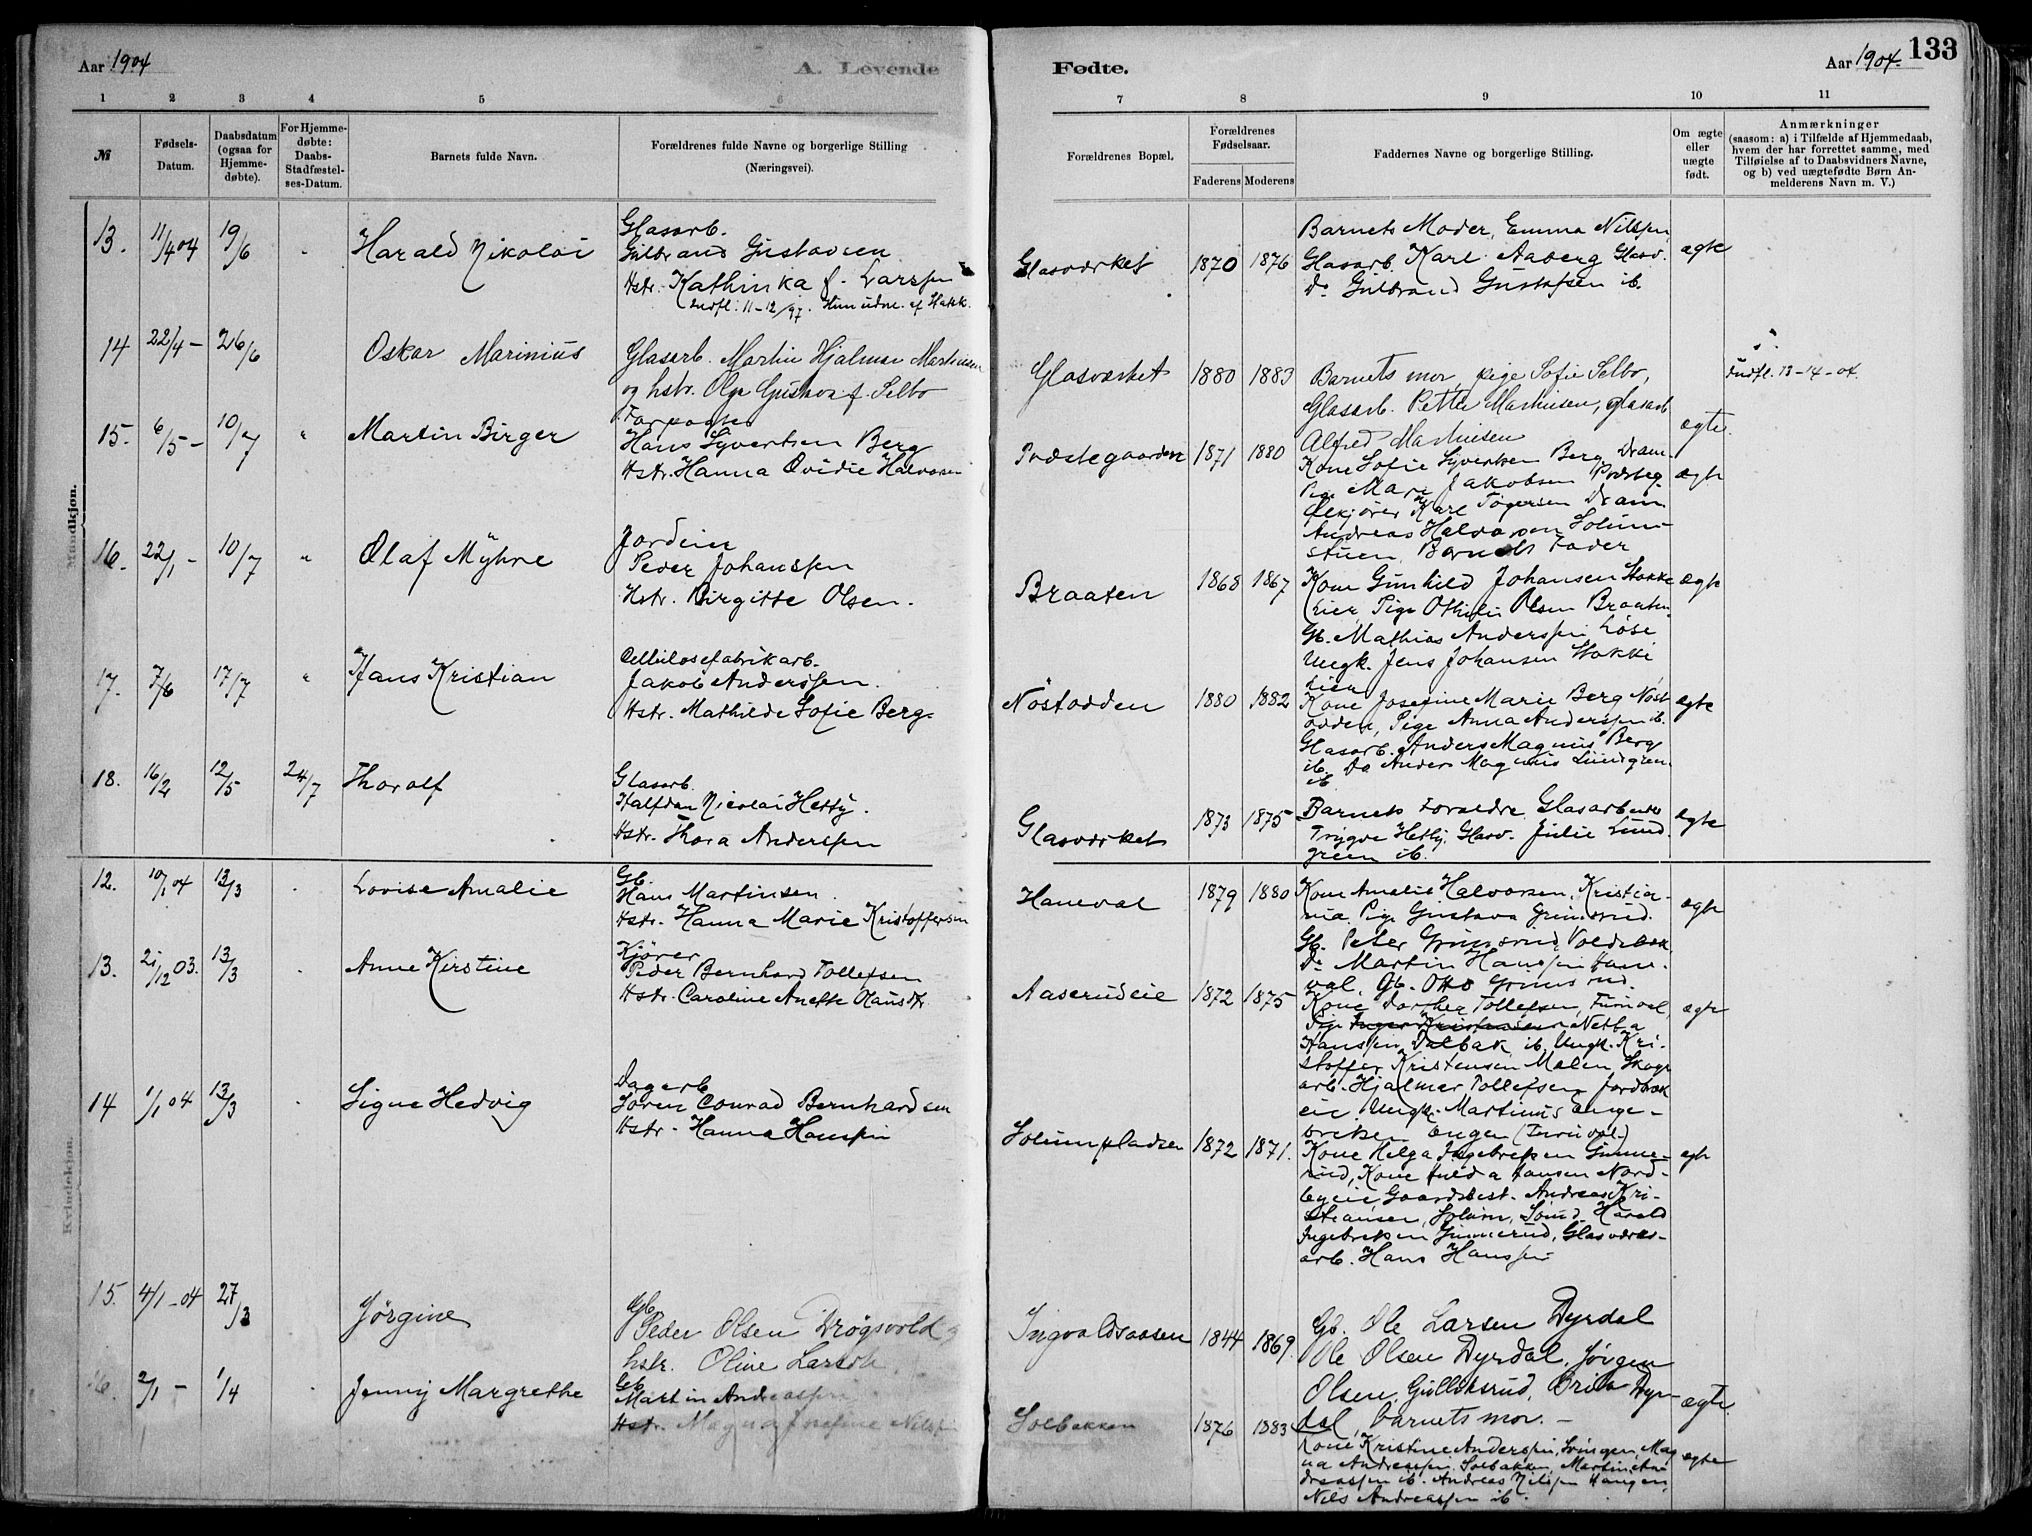 Aar 1904
A. Levende
Fødte.
Aar 1904.
133
1 2 3 4 5 6
7 8 9 10 11
№
Fødsels-
Datum.
Daabsdatum
(ogsaa for
Hjemme-
døbte).
For Hjemme-
døbte:
Daabs-
Stadfæstel-
ses-Datum.
Barnets fulde Navn.
Forældrenes fulde Navne og borgerlige Stilling
(Næringsvei).
Forældrenes Bopæl.
Forældrenes
Fødselsaar.
Faderens
Moderens
Faddernes Navne og borgerlige Stilling.
Om ægte
eller
uægte
født.
Anmærkninger
(saasom: a) i Tilfælde af Hjemmedaab,
hvem der har forrettet samme, med
Tilføielse af to Daabsvidners Navne,
og b) ved uægtefødte Børn An-
melderens Navn m. V.)
Mandkjøn.
13. 11/4 04 19/6 Harald Nikolai
Glasarb.
Gulbrand Gustavsen
Hstr. Kathinka f. Larssen
Indfl. 11-12/97. Hun udm. af Hakk.
Glasværket 1870 1876
Barnets Moder, Emma Nilssen
Glasarb. Karl Aaberg Glasv.
Do Gulbrand Gustafsen ib.
ægte
14 22/4 – 26/6 Oskar Marinius
Glasarb. Martin Hjalmar Martinsen
og hstr. Olga Gustava f. Selbo
Glasværket 1880 1883
Barnets mor, pige Sofie Selbo,
Glasarb. Petter Martinsen, glasarb
Alfred Martinsen
ægte.
Indfl. 13-14-04.
15. 6/5 – 10/7 " Martin Birger
Forpagter
Hans Syvertsen Berg
Hstr. Hanna Ovidie Halvorsen
Præstegaarden 1871 1880
Kone Sofie Syvertsen Berg Dram-
Pige Mari Jakobsen Præsteg.
Ølkjører Karl Togersen Dram
Andreas Halvorsen Solum-
stuen, Barnets Fader
ægte
16. 22/1 – 10/7 " Olaf Myhre
Jordeier
Peder Johanssen
Hstr. Birgitte Olsen.
Braaten 1868 1867
Kone Gunhild Johansen Stokke
eier, Pige Othilie Olsen Braaten
Gb. Mathias Anderssen Løse
Ungk. Jens Johansen Stokke
eier
ægte
17. 7/6 17/7 " Hans Kristian
Cellulosefabrikarb.
Jakob Anderssen.
Hstr. Mathilde Sofie Berg.
Nøstodden 1880 1882
Kone Josefine Marie Berg Nøst
odden, Pige Anna Anderssen ib.
Glasarb. Anders Magnus Berg
ib. Do Anders Magnus Lundgren
ib
ægte
18. 16/2 12/5 24/7 Thoralf
Glasarb.
Halfdan Nicolai Hetty.
Hstr. Thora Anderssen
Glasværket 1873 1875
Barnets Forældre Glasarbeider
Trygve Hetty, Glasv. Julie Lund
green ib.
ægte
Kvindekjøn.
12. 10/1 04 13/3 Lovise Amalie
Gb.
Hans Martinsen.
Hstr. Hanna Marie Kristoffersen
Haneval 1879 1880
Kone Amalie Halvorsen, Kristia-
nia, Pige Gustava Grimsrud.
Gb. Peter Grimsrud, Voldsbak
Do Martin Hanssen Hane-
val, Gb. Otto Grimsrud.
ægte
13. 21/12 03. 13/3 Anne Kirstine
Kjører
Peder Bernhard Tollefsen
Hstr. Caroline Anette Olausdtr
Aaserudeie 1872 1875
Kone Dorthea Tollefsen, Furuval,
Pige Inger Kristensen Netta
Hanssen Dalbak ib. Ungk. Kri-
stoffer Kristensen Malen, Skogs
arb. Hjalmar Tollefsen Jordbræk
eie, Ungk. Martinus Enge-
bretsen Enger (Furuval.)
ægte
14 1/1 04 13/3 Signe Hedvig
Dagarb.
Søren Conrad Bernhardsen
Hstr. Hanna Hanssen
Solumpladsen 1872 1871.
Kone Helga Ingebretsen Gunne-
rud, Kone Hulda Hansen Nord-
byeie, Gaardsbest. Andreas Kri-
stiansen, Solum, Smed Harald
Ingebretsen Gunnerud, Glasværks-
arb. Hans Hanssen
ægte
15. 4/1 – 04 27/3 Jørgine
Gb.
Peder Olsen Drøgsvold og
hstr. Oline Larsdtr
Ingvaldsaasen 1844 1869.
Gb. Ole Larsen Dyrdal
Ole Olsen Dyrdal, Jørgen
Olsen, Gulliksrud, Berit Dyr-
dal, barnets mor. –
ægte.
16. 2/1 – 1/4 Jenny Margrethe
Gb.
Martin Andreassen
Hstr. Magna Josefine Nilssen
Solbakken 1876 1883
Kone Kristine Anderssen, Svingen, Mag
na Andreassen Solbakken, Martin An-
dreassen ib. Andreas Nilssen Haugen,
Nils Andreassen ib.
ægte